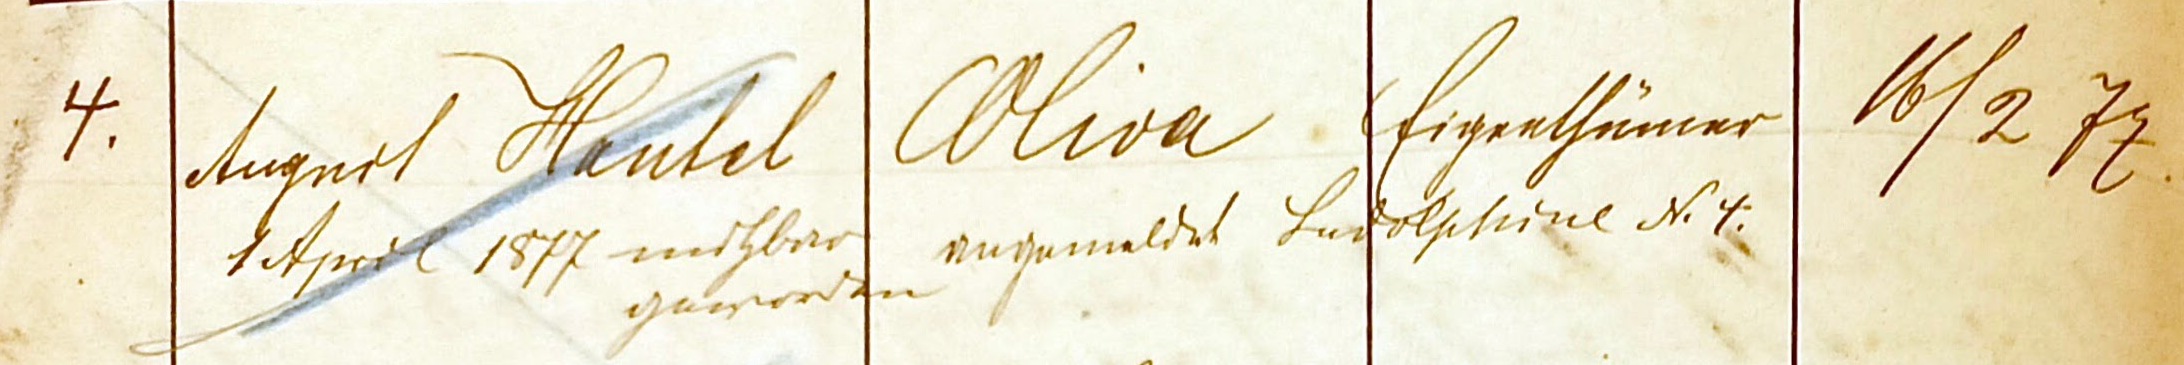 4. August Hentel Oliva Eigenthümer 16/2 77.
1 April 1877 angemeldet Ludolphine N. 4.
geworden